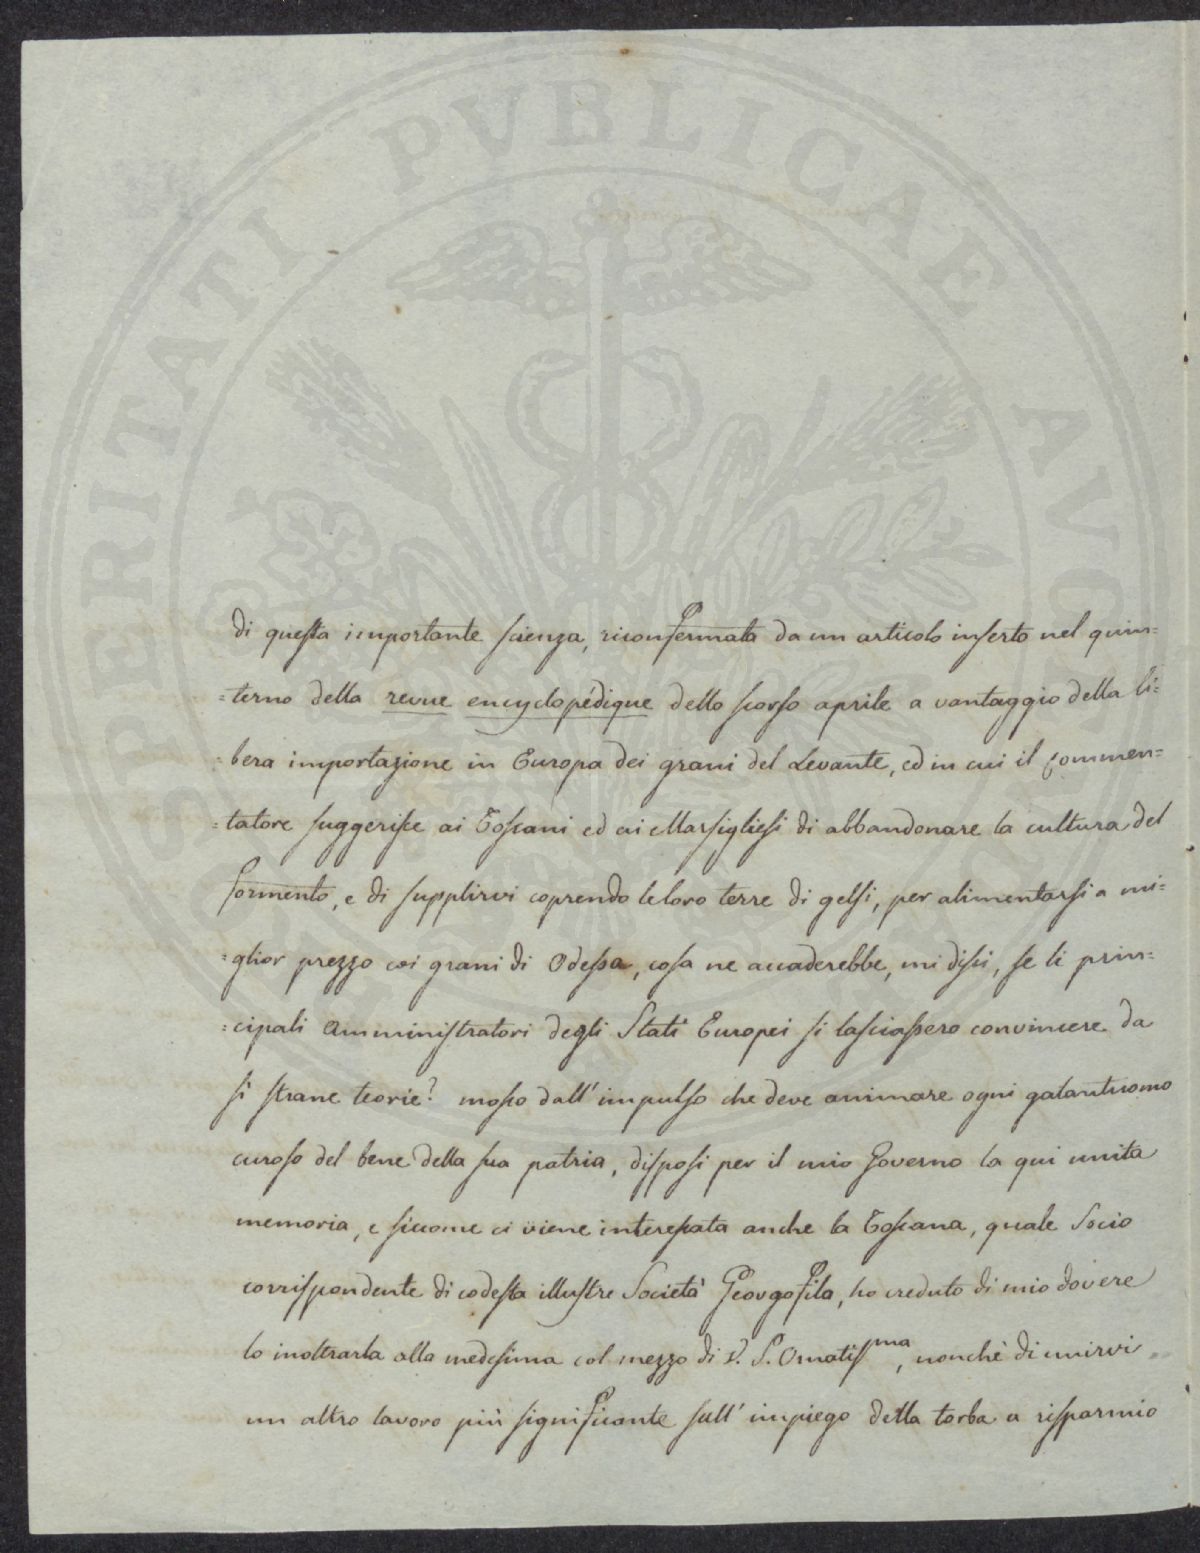 PROSPERITATI PVBLICAE AVGENDAE
di questa importante scienza, riconfermata da un articolo inserto nel quin=
=terno della revue encyclopédique dello scorso aprile a vantaggio della li=
=bera importazione in Europa dei grani del Levante, ed in cui il commen=
=tatore suggerisce ai Toscani ed ai Marsigliesi di abbandonare la cultura del
formento, e di supplirvi coprendo le loro terre di gelsi, per alimentarsi a mi=
=glior prezzo coi grani di Odessa, cosa ne accaderebbe, mi dissi, se li prin=
=cipali Amministratori degli Stati Europei si lasciassero convincere da
sì strane teorie? mosso dall'impulso che deve animare ogni galantuomo
curoso del bene della sua patria, disposi per il mio Governo la qui unita
memoria, e siccome ci viene interessata anche la Toscana, quale Socio
corrispondente di codesta illustre Società Georgofila, ho creduto di mio dovere
lo inoltrarla alla medesima col mezzo di V. S. Ornatissma, nonchè di unirvi
un altro lavoro più significante sull'impiego della torba a risparmio